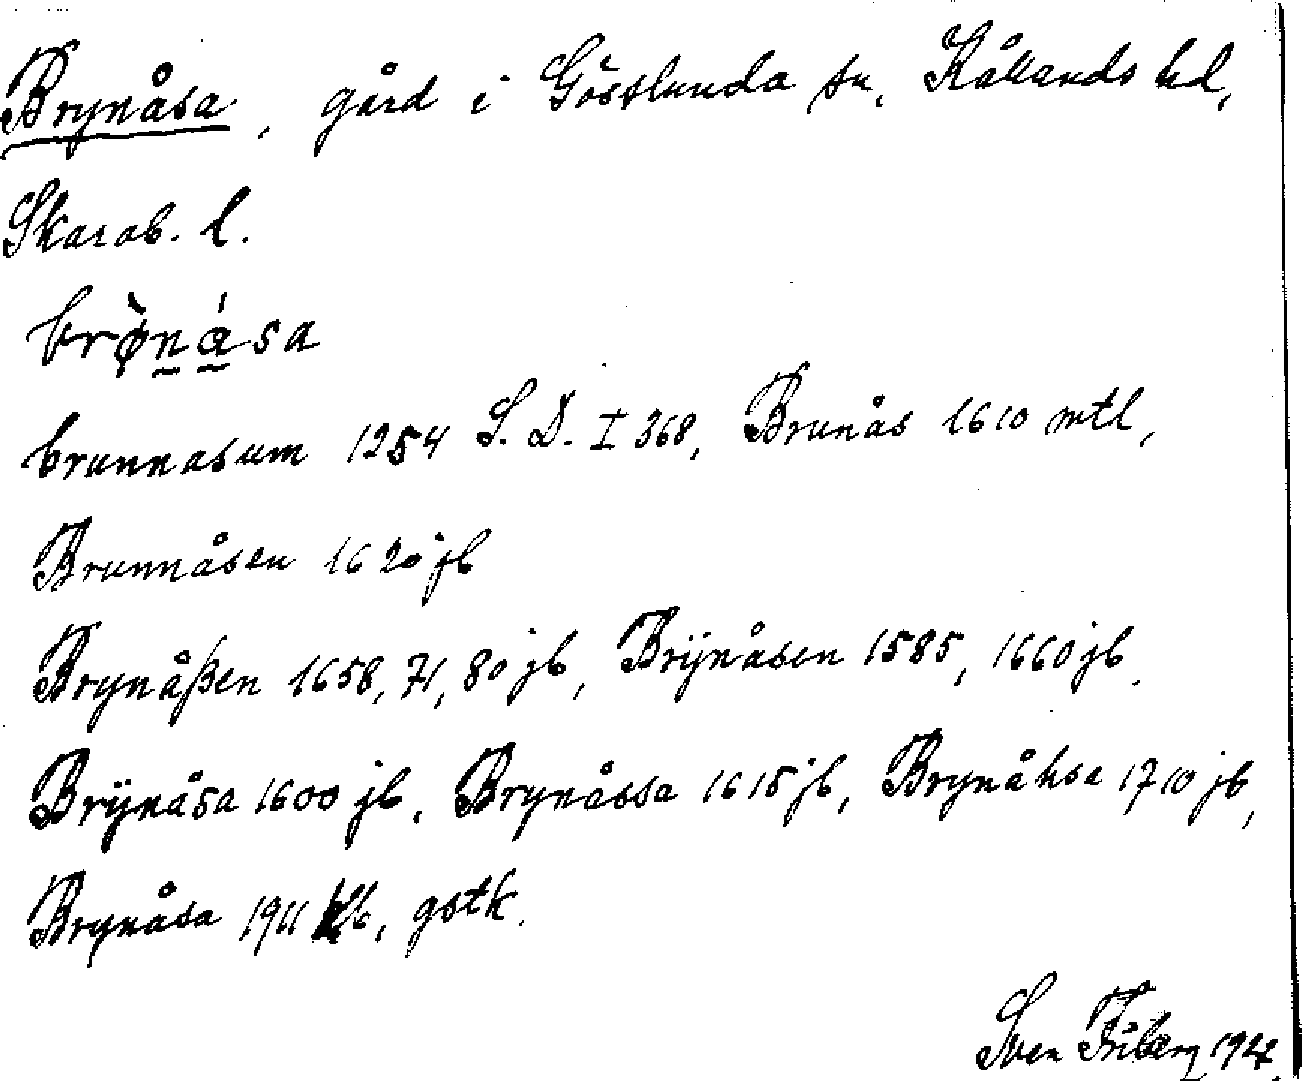 Brynåsa, gård i Göstlunda sn, Kållands hd,
Skarab. l.
brø̀ná̰sa
brunnasum 1254 S. D. I 368, Brunås 1610 mtl,
Brunnåsen 1620 jb
Brynåßen 1658, 71, 80 jb, Brÿnåsen 1585, 1660 jb.
Brÿnåsa 1600 jb, Brynåssa 1615 jb, Brynåhsa 1710 jb,
Brynåsa 1911 gstk.
Sven Friberg